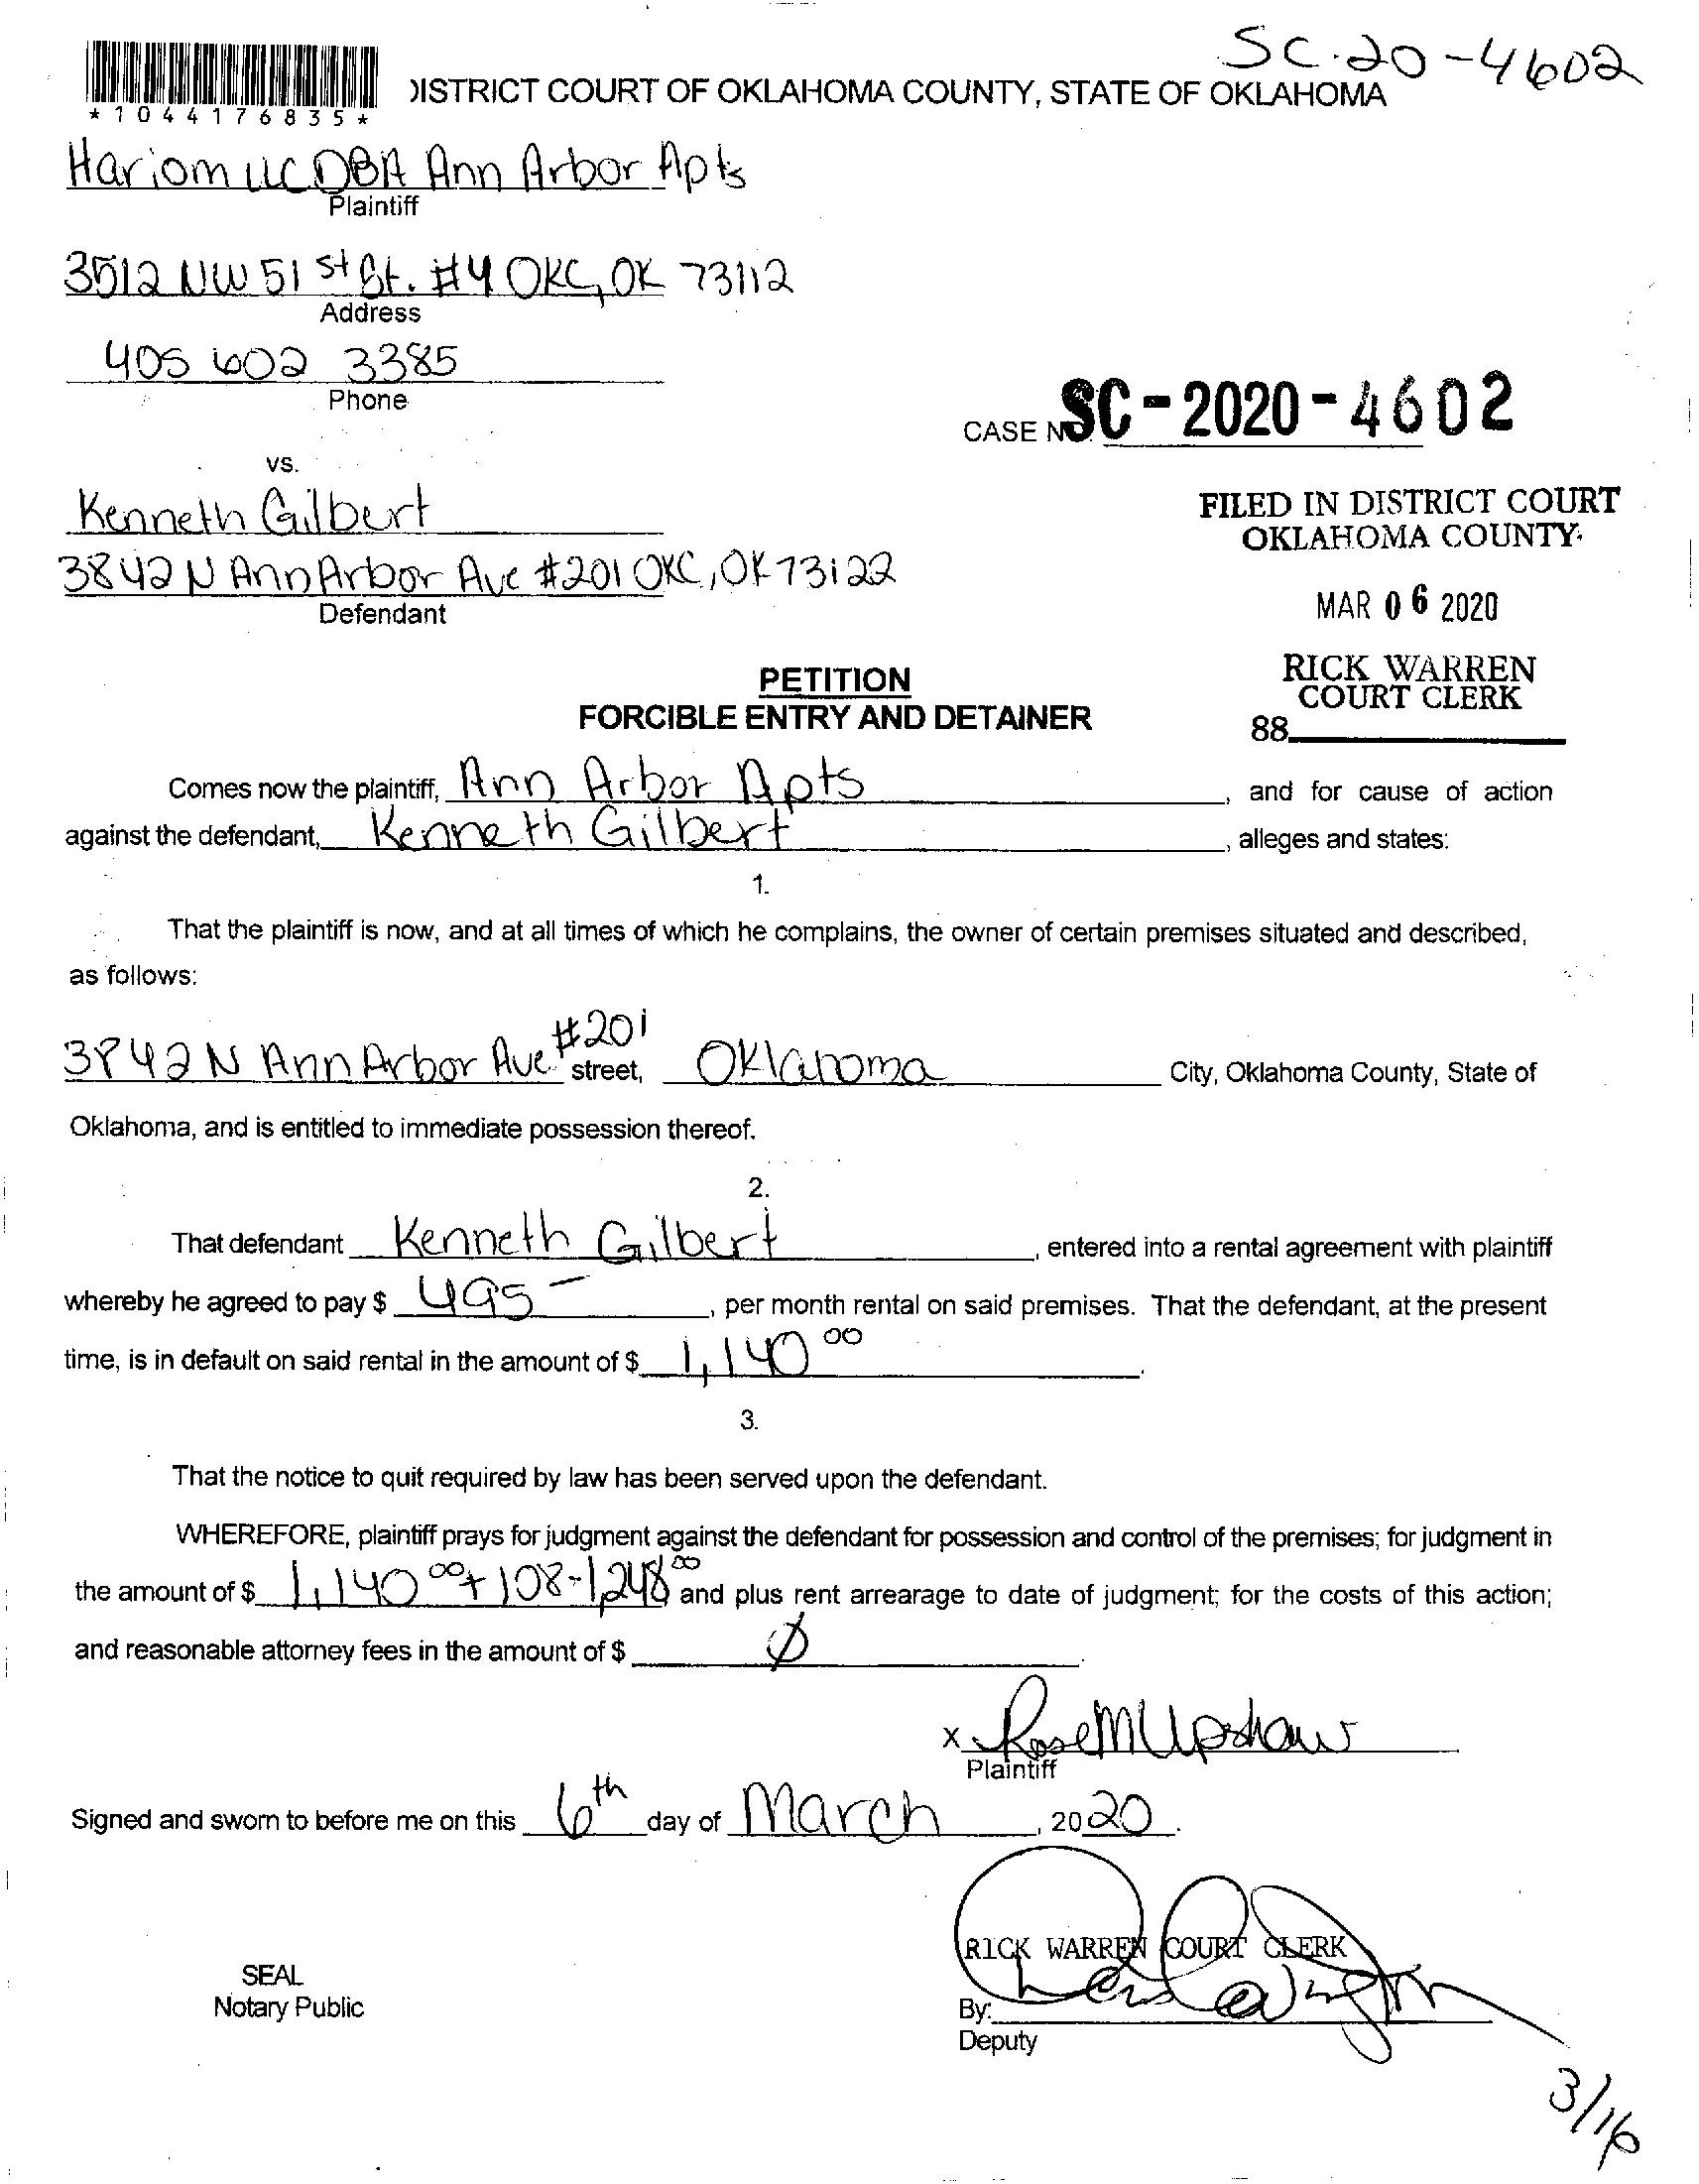 SC-20-4602
DISTRICT COURT OF OKLAHOMA COUNTY, STATE OF OKLAHOMA
*1044176835*
Hariom LLC DBA Ann Arbor Apts
Plaintiff
3512 NW 51st St. #4 OKC, OK 73112
Address
405 602 3385
Phone
CASE NO. SC-2020-4602
vs.
Kenneth Gilbert
3842 N Ann Arbor Ave #201 OKC, OK 73122
Defendant
FILED IN DISTRICT COURT
OKLAHOMA COUNTY
MAR 06 2020
RICK WARREN
COURT CLERK
88
PETITION
FORCIBLE ENTRY AND DETAINER
Comes now the plaintiff, Ann Arbor Apts, and for cause of action
against the defendant, Kenneth Gilbert, alleges and states:
1.
That the plaintiff is now, and at all times of which he complains, the owner of certain premises situated and described,
as follows:
3842 N Ann Arbor Ave #201 street, Oklahoma City, Oklahoma County, State of
Oklahoma, and is entitled to immediate possession thereof.
2.
That defendant Kenneth Gilbert, entered into a rental agreement with plaintiff
whereby he agreed to pay $ 495-, per month rental on said premises. That the defendant, at the present
time, is in default on said rental in the amount of $ 1,140 00.
3.
That the notice to quit required by law has been served upon the defendant.
WHEREFORE, plaintiff prays for judgment against the defendant for possession and control of the premises; for judgment in
the amount of $ 1,140 00 + 108-1,248 00 and plus rent arrearage to date of judgment; for the costs of this action;
and reasonable attorney fees in the amount of $ Ø.
x Rose M Upshaw
Plaintiff
Signed and sworn to before me on this 6th day of March, 2020.
RICK WARREN COURT CLERK
SEAL
Notary Public
By:
Deputy
3/16